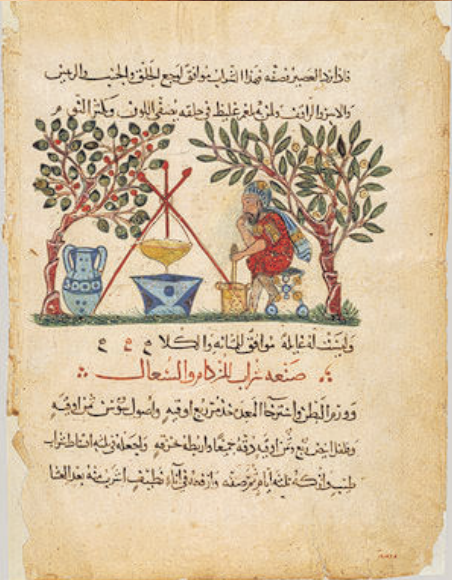 فاذا برد العصير وصفه فهذا الشراب موافق لوجع الحلق والجنب والرئتين
ولمن بلغم غليظ في حلقه يصفي اللون ويكثر النوم
وليست له غايلة موافق للمثانة والكلا
صنعة شراب للزكام والسعال
وورم البطن واسترخا المعدة خذ مر ربع اوقيه واصول سوسن ثمن اوقيه
وفلفل ابيض ربع وثمن اوقيه دقه جميعا واربطه بخرقه واجعله في ثلثه اقساط شراب
طيب واتركه ثلثه ايام ثم صفه وارفعه في انا نظيف اشرب منه بعد العشا